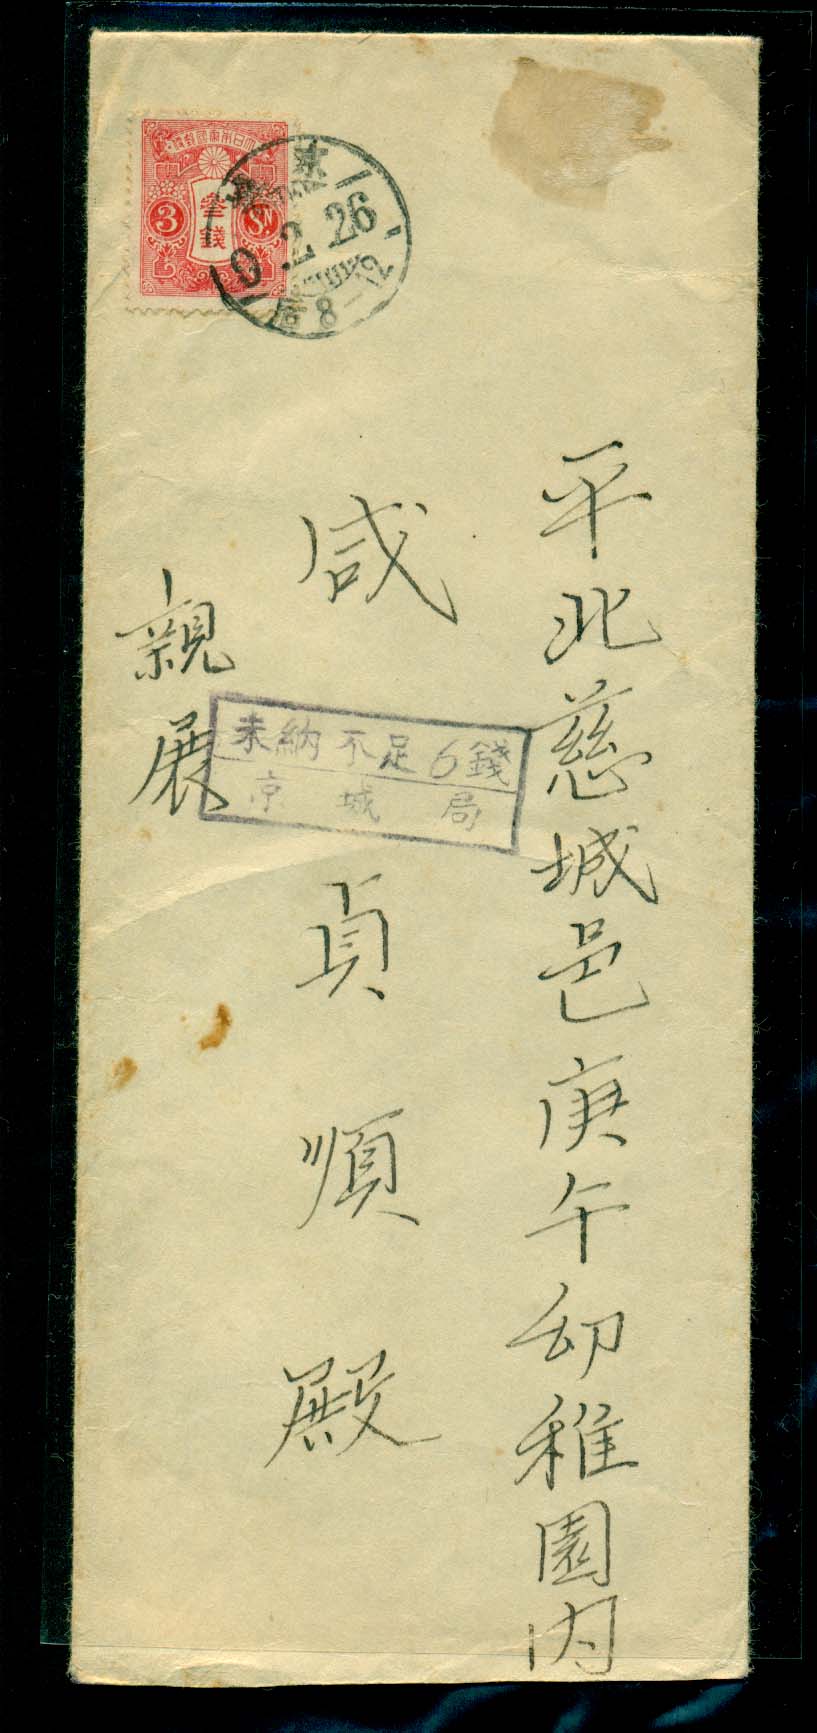 大日本帝國郵便
3 SN
參錢
京
9.2.26
8-12
平北慈城邑庚午幼稚園内
咸貞順殿
親展
未納不足6錢
京城局